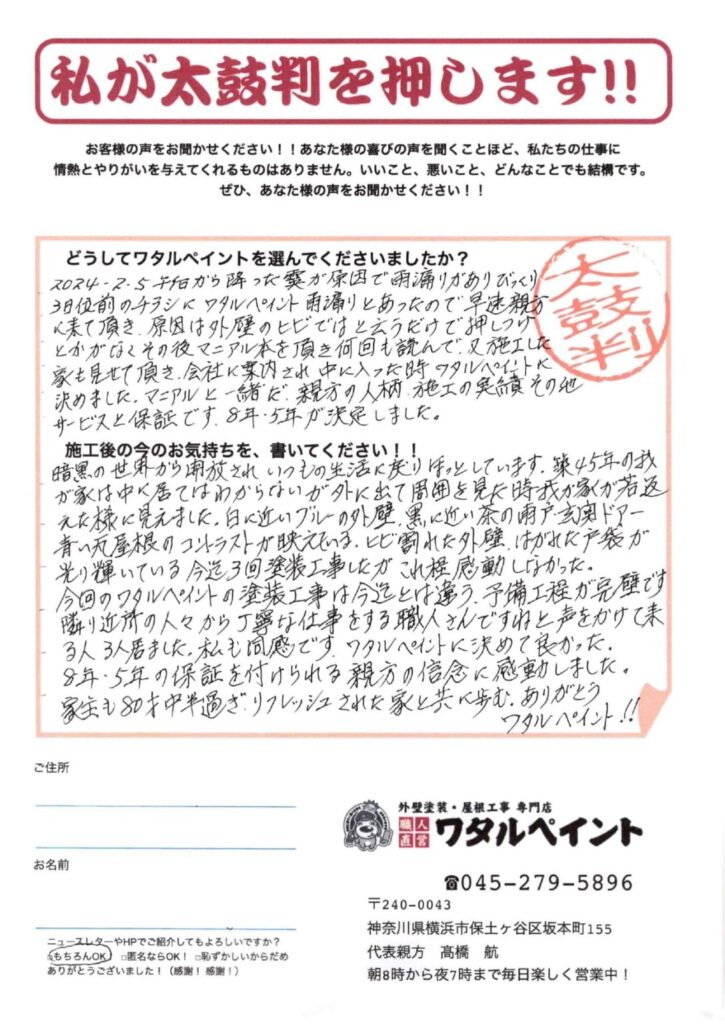 私が太鼓判を押します!!
お客様の声をお聞かせください！！あなた様の喜びの声を聞くことほど、私たちの仕事に
情熱とやりがいを与えてくれるものはありません。いいこと、悪いこと、どんなことでも結構です。
ぜひ、あなた様の声をお聞かせください！！
どうしてワタルペイントを選んでくださいましたか？
太鼓判
2024-2.5 から降った雪が原因で雨漏りがありびっくり
3日位前のチラシにワタルペイント雨漏りとあったので早速親方
に来て頂き、原因は外壁のヒビではと云うだけで押しつけ
とかがなくその後マニアル本を頂き何回も読んで、又施工した
家も見せて頂き、会社に案内され中に入った時ワタルペイントに
決めました。マニアルと一緒だ、親方の人柄、施工の実績その他
サービスと保証です、8年・5年が決定しました。
施工後の今のお気持ちを、書いてください！！
暗黒の世界から開放され いつもの生活に戻りほっとしています、築45年の我
が家は中に居てはわからないが外に出て周囲を見た時我が家が若返
えた様に見えました。白に近いブルーの外壁、黒に近い茶の雨戸・玄関ドアー
青い瓦屋根のコントラストが映えている、ヒビ割れた外壁、はがれた戸袋が
光り輝いている 今迄3回塗装工事したが これ程感動しなかった。
今回のワタルペイントの塗装工事は今迄とは違う、予備工程が完璧です
隣り近所の人々から丁寧な仕事をする職人さんですねと声をかけて来
る人 3人居ました、私も同感です、ワタルペイントに決めて良かった。
8年・5年の保証を付けられる 親方の信念に感動しました。
家主も80才中半過ぎ、リフレッシュされた家と共に歩む、ありがとう
ワタルペイント!!
ご住所
お名前
ニュースレターやHPでご紹介してもよろしいですか？
□もちろんOK □匿名ならOK！ □恥ずかしいからだめ
ありがとうございました！（感謝！感謝！）
外壁塗装・屋根工事 専門店
職人直営 ワタルペイント
☎045-279-5896
〒240-0043
神奈川県横浜市保土ヶ谷区坂本町155
代表親方 髙橋 航
朝8時から夜7時まで毎日楽しく営業中！